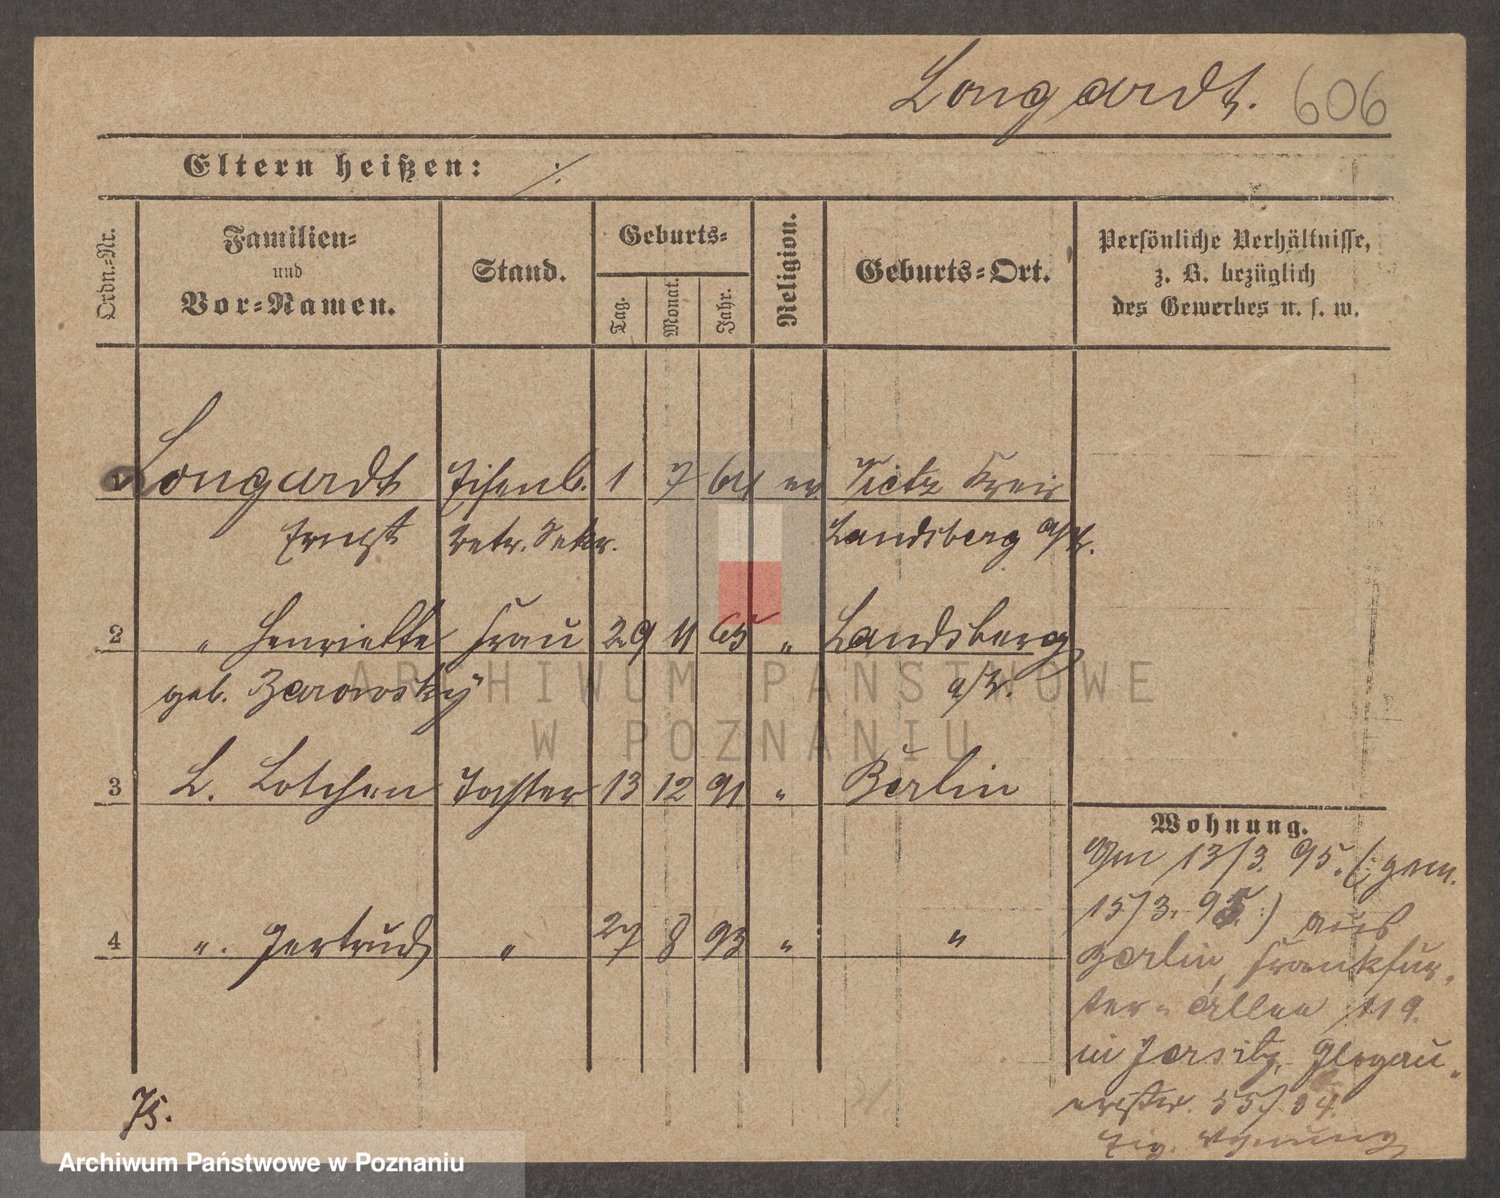 Longardt. 606
Eltern heißen: ./.
Ordn.-Nr.
Familien-
und
Vor-Namen.
Stand.
Geburts-
Tag.
Monat.
Jahr.
Religion.
Geburts-Ort.
Persönliche Verhältnisse,
z. B. bezüglich
des Gewerbes u. s. w.
Longardt Eisenb. 1 7 64 ev Vietz Kreis
Ernst Betr. Sekr. Landsberg a/W.
2 " Henriette Frau 29 11 65 " Landsberg
geb. Zarowsky a/W.
3 L. Lotchen Tochter 13 12 91 " Berlin
4 " Gertrud " 27 8 93 " "
Wohnung.
Am 13/3. 95. (: gem.
15/3. 95 :) aus
Berlin, Frankfur-
ter-Allee 119.
in Jersitz, Glogau-
erstr. 55/
Eig. Wohnung
75.
ARCHIWUM PAŃSTWOWE
W POZNANIU
Archiwum Państwowe w Poznaniu